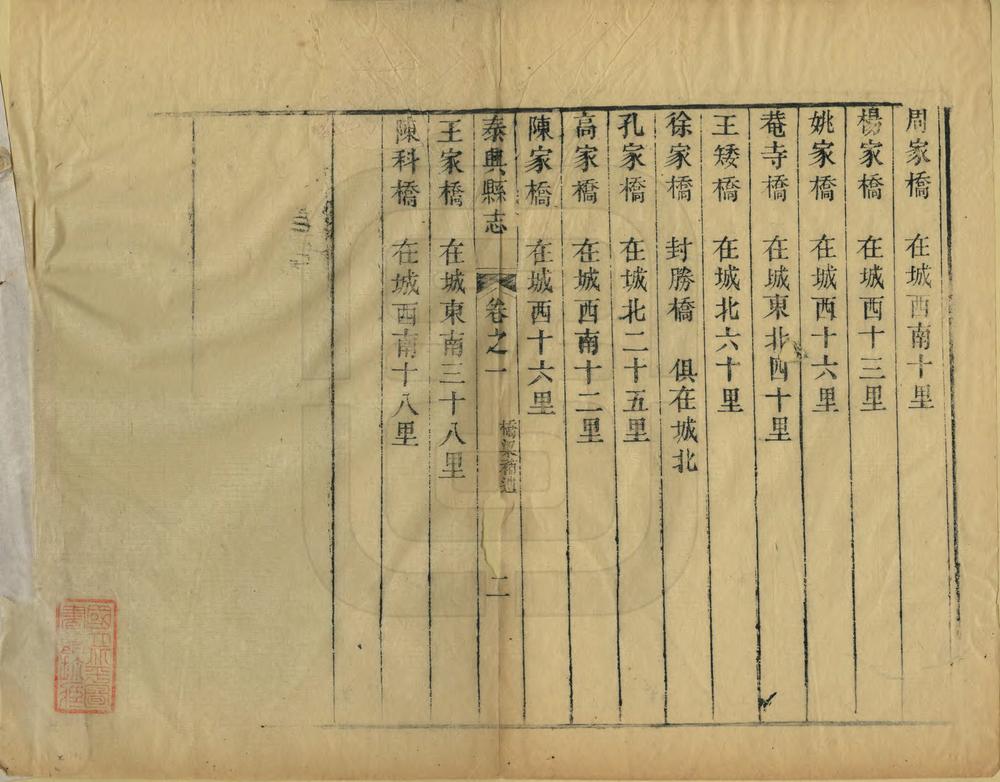 周家橋　在城西南十里
楊家橋　在城西十三里
姚家橋　在城西十六里
菴寺橋　在城東北四十里
王矮橋　在城北六十里
徐家橋　封勝橋　俱在城北
孔家橋　在城北二十五里
高家橋　在城西南十二里
陳家橋　在城西十六里
泰興縣志　卷之一　橋梁　二
王家橋　在城東南三十八里
陳科橋　在城西南十八里